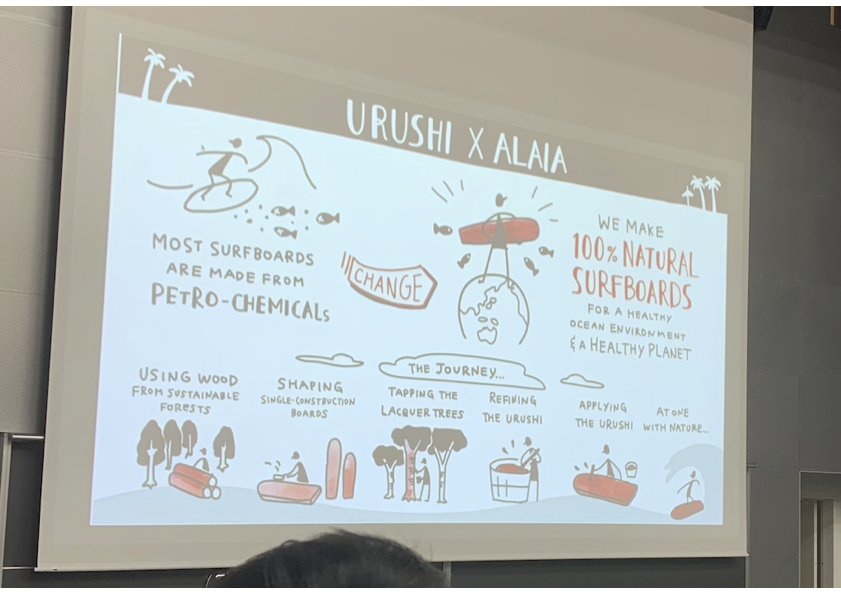 URUSHI X ALAIA
MOST SURFBOARDS
ARE MADE FROM
PETRO-CHEMICALS
CHANGE
WE MAKE
100% NATURAL
SURFBOARDS
FOR A HEALTHY
OCEAN ENVIRONMENT
& A HEALTHY PLANET
THE JOURNEY...
USING WOOD
FROM SUSTAINABLE
FORESTS
SHAPING
SINGLE-CONSTRUCTION
BOARDS
TAPPING THE
LACQUER TREES
REFINING
THE URUSHI
APPLYING
THE URUSHI
AT ONE
WITH NATURE...